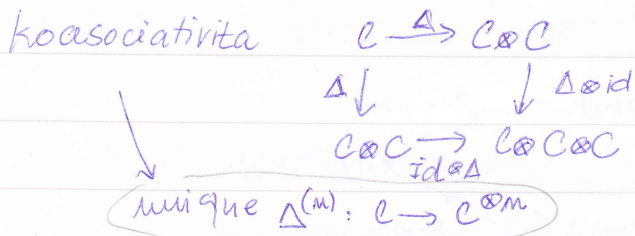 koasociativita C \xrightarrow{Δ} C⊗C
Δ↓ ↓Δ⊗id
C⊗C \xrightarrow{id⊗Δ} C⊗C⊗C
unique Δ^{(n)}: C → C^{⊗n}